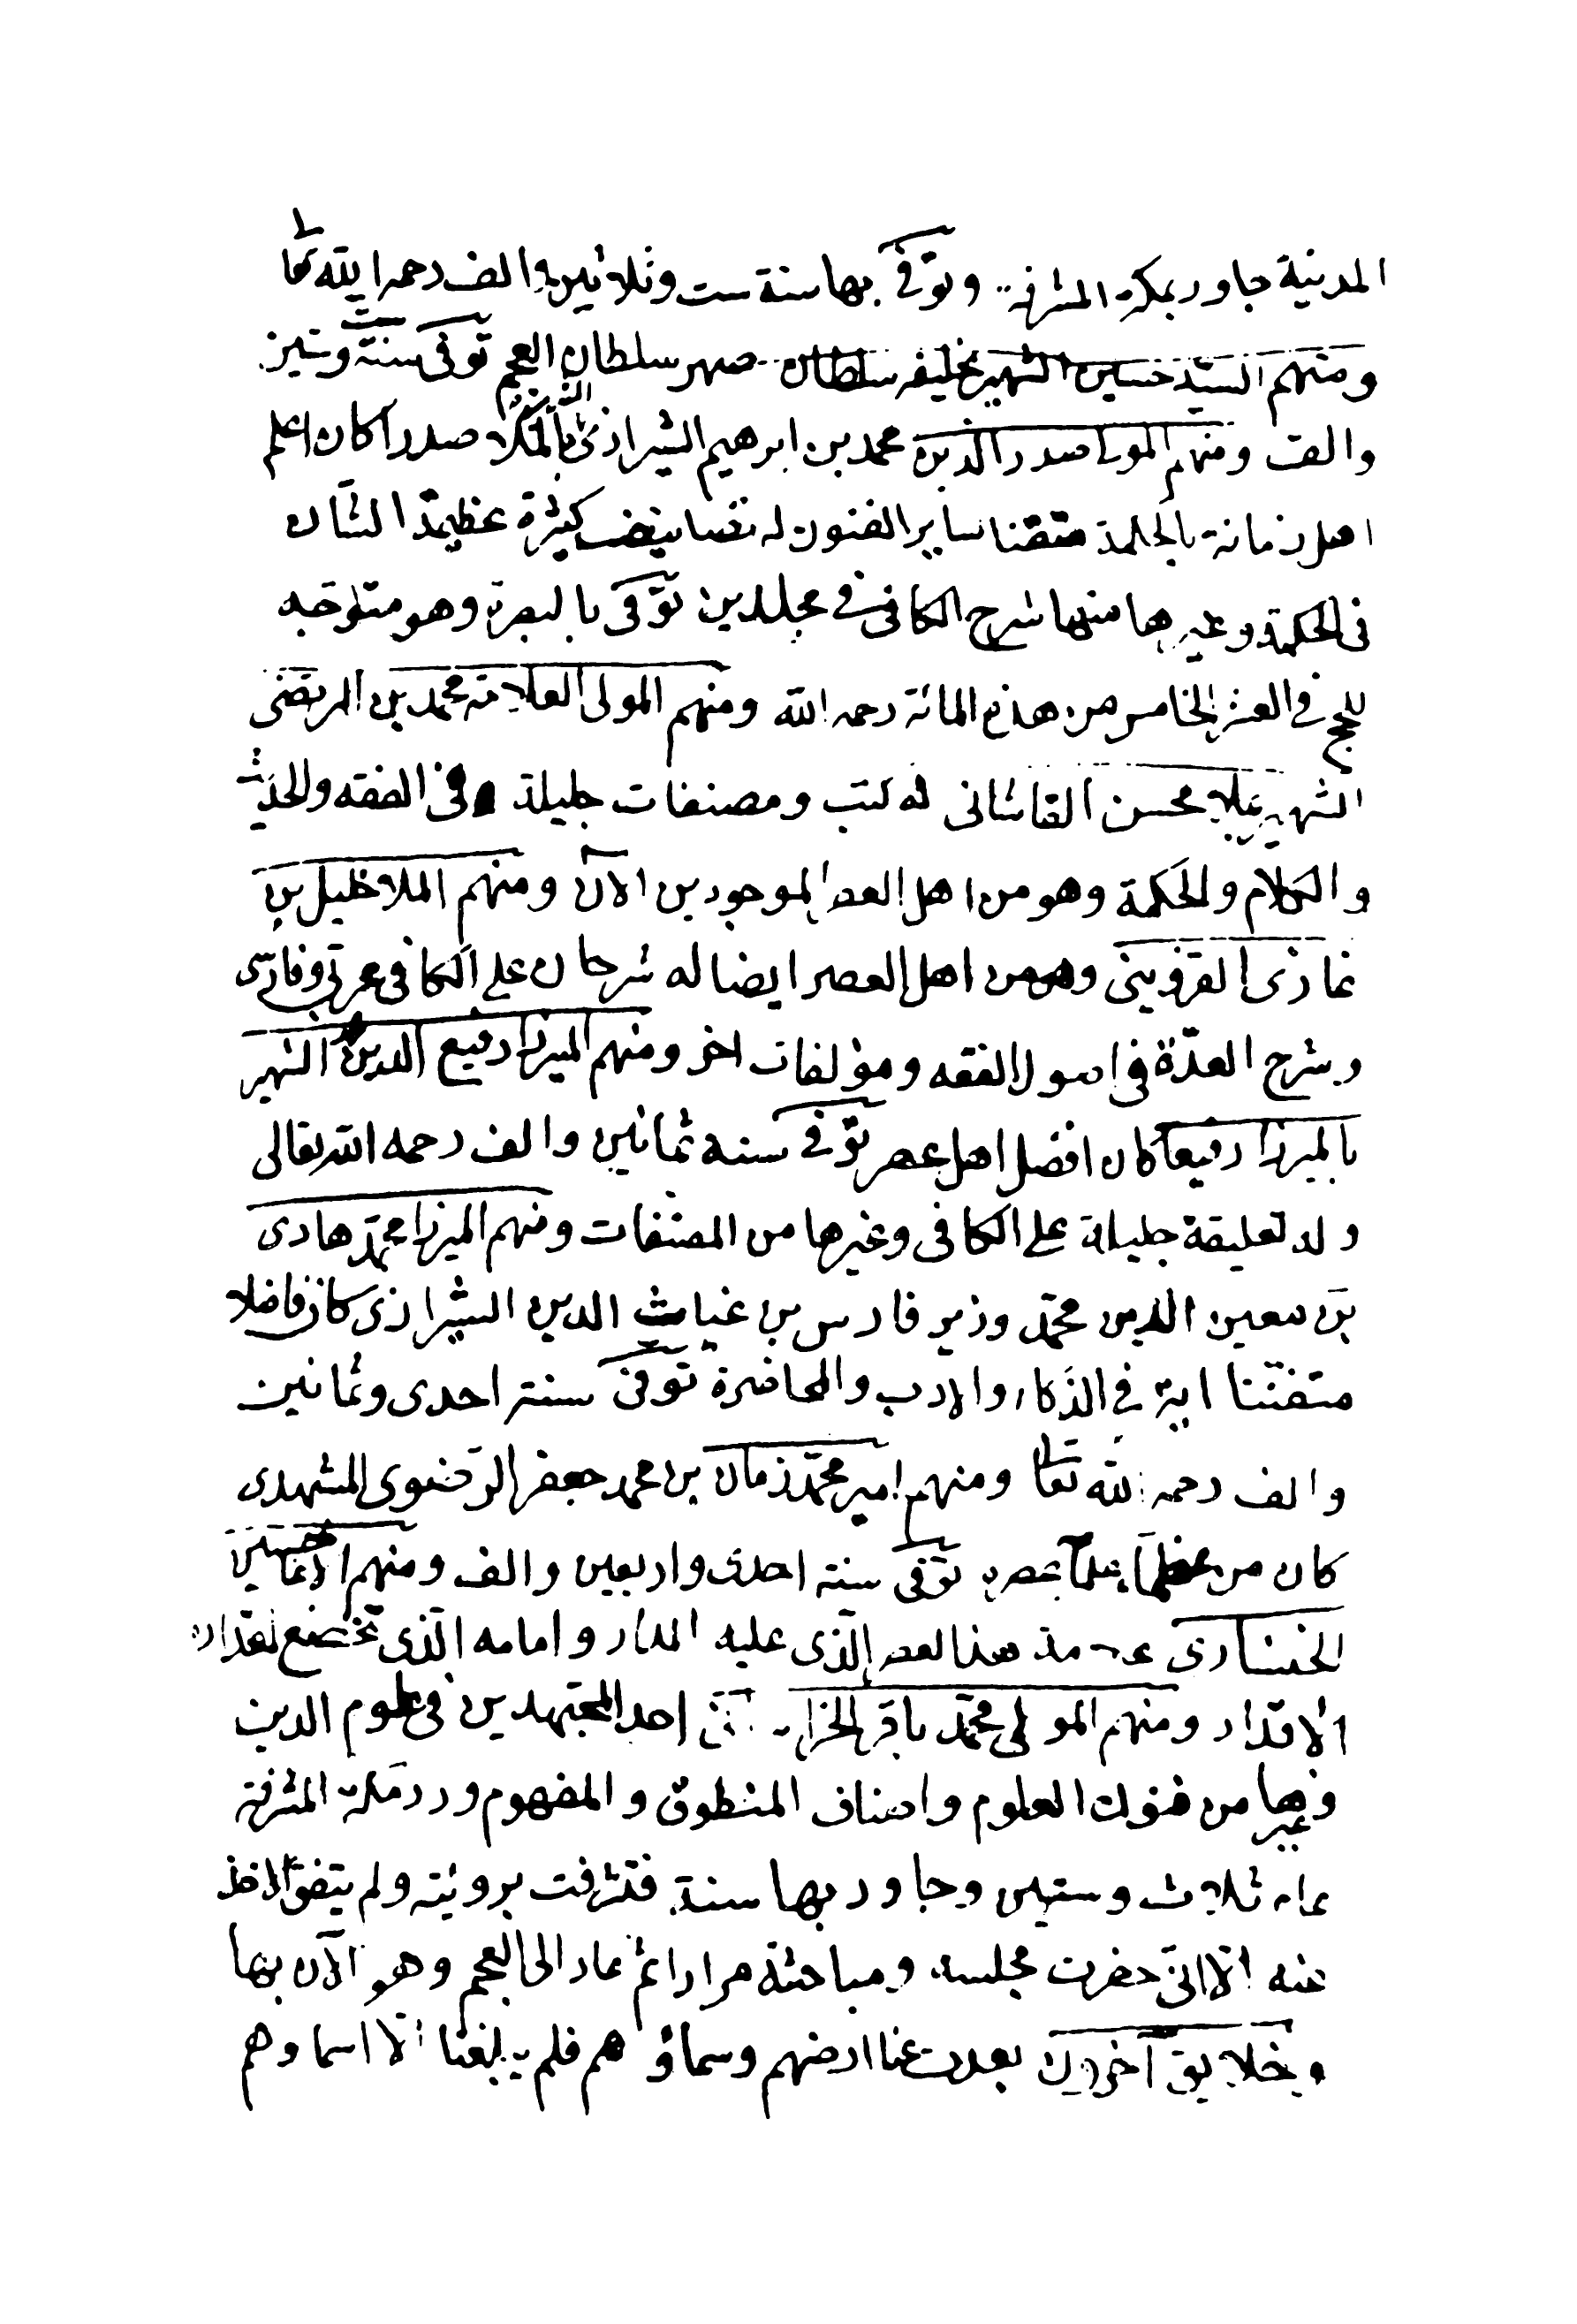 المدنية جاور بمكة المشرفة وتوفى بها سنة ست وثلاثين والف رحمه الله تعا
ومنهم السيد حسين الشهير بخليفه سلطان صهر سلطان العجم توفى سنة ست وستين
والف ومنهم المولى صدر الدين محمد بن ابرهيم الشيرازى الشهير بالملا صدرا كان اعلم
اهل زمانة بالحكمة متقنا ساير الفنون له تصانيف كثيرة عظيمة الشان
فى الحكمة وغيرها منها شرح الكافى فى مجلدين توفى بالبصرة وهو متوجه
للحج فى العشر الخامس من هذه المائة رحمه الله ومنهم المولى العلامة محمد بن المرتضى
الشهير بملا محسن القاشانى له كتب ومصنفات جليلة فى الفقه والحديث
والكلام والحكمة وهو من اهل العصر الموجودين الآن ومنهم الملا خليل بن
غازى القزوينى وهو من اهل العصر ايضا له شرحان على الكافى عربى وفارسى
وشرح العدّة فى اصول الفقه ومؤلفات اخر ومنهم الميرزا رفيع الدين الشهير
بالميرزا رفيعا كان افضل اهل عصره توفى سنه ثمانين والف رحمه الله تعالى
وله تعليقة جليلة على الكافى وغيرها من المصنفات ومنهم الميرزا محمد هادى
بن معين الدين محمد وزير فارس بن غياث الدين الشيرازى كان فاضلا
متفننا اية فى الذكاء والادب والمحاضرة توفى سنة احدى وثمانين
والف رحمه الله تعا ومنهم امير محمد زمان بن محمد جعفر الرضوى المشهدى
كان من عظماء علماء عصره توفى سنة احدى واربعين والف ومنهم الاغا حسين
الخنسارى علامة هذا العصر الذى عليه المدار وامامه الذى تخضع لمقداره
الاقدار ومنهم المولى محمد باقر الخراسانى احد المجتهدين فى علوم الدين
وغيرها من فنون العلوم واصناف المنطوق والمفهوم ورد مكة المشرفة
عام ثلاث وستين وجاور بها سنة فتشرفت برويته ولم يتفق الاخذ
عنه الا انى حضرت مجلسه ومباحثة مرارا ثم عاد الى العجم وهو الآن بها
وخلايق آخرون بعدت عنا ارضهم وسماؤهم فلم يبلغنا الا اسماوهم